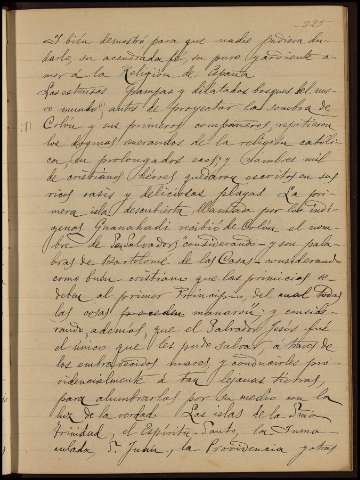 225
Y bién demostró para que nadie pudiera du-
darlo, su acendrada fé, su puro y ardiente a-
mor á la Religión de España
Las extensas pampas y dilatados bosques del nue-
vo mundo, antes de proyectar la sombra de
Colón y sus primeros compañeros, repitieron
los dogmas sagrados de la religión católi-
ca, en prolongados ecos; y nombres mil
de cristianos héroes quedaron escritos en sus
ricos oasis y deliciosas playas. La pri-
mera isla descubierta, llamada por los indí-
genas Guanahadi recibió de Colón, el nom-
bre de Sn Salvador, considerando — y son pala-
bras de Bartolomé de las Casas — considerando
como buen cristiano que las primicias se
debían al primer Principio, del cual todas
las cosas manaron; y conside-
rando, además, que el Salvador Jesús fué
el único que les pudo salvar, á través de
los embravecidos mares, y conducirles pro-
videncialmente á tan lejanas tierras,
para alumbrarlas por su medio con la
luz de la verdad. Las islas de la Sma
Trinidad, el Espíritu-Santo, la Inma-
culada, Sn Juan, la Providencia y otras